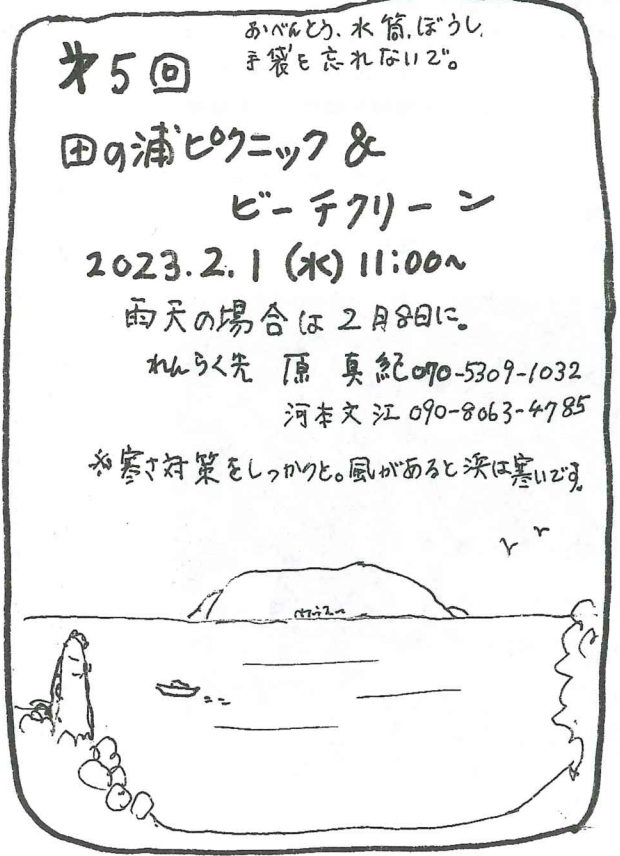 おべんとう、水筒、ぼうし、
手袋も忘れないで。
第5回
田の浦ピクニック &
ビーチクリーン
2023.2.1 (水) 11:00~
雨天の場合は 2月8日に。
れんらく先 原 真紀 070-5309-1032
河本文江 090-8063-4785
※寒さ対策をしっかりと。風があると浜は寒いです。